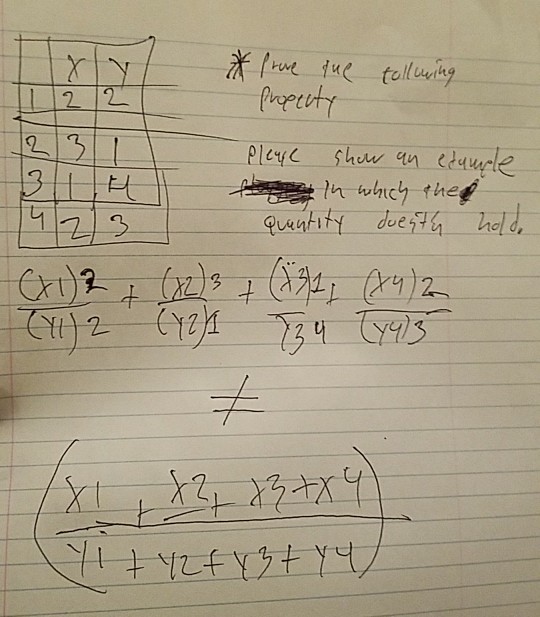 X Y
1 2 2
2 3 1
3 1 4
4 2 3
* Prove the following
Property
Please show an example
in which the
quantity doesn't hold.
(X1)2 + (X2)3 + (X3)1 + (X4)2
(Y1)2 (Y2)1 Y3 4 (Y4)3
≠
(X1 + X2 + X3 + X4)
Y1 + Y2 + Y3 + Y4